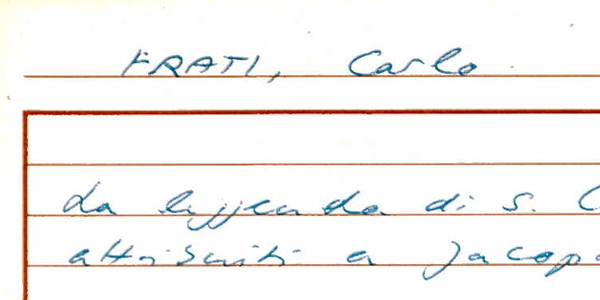 FRATI, Carlo
La leggenda di S. C
attribuiti a Jacopo